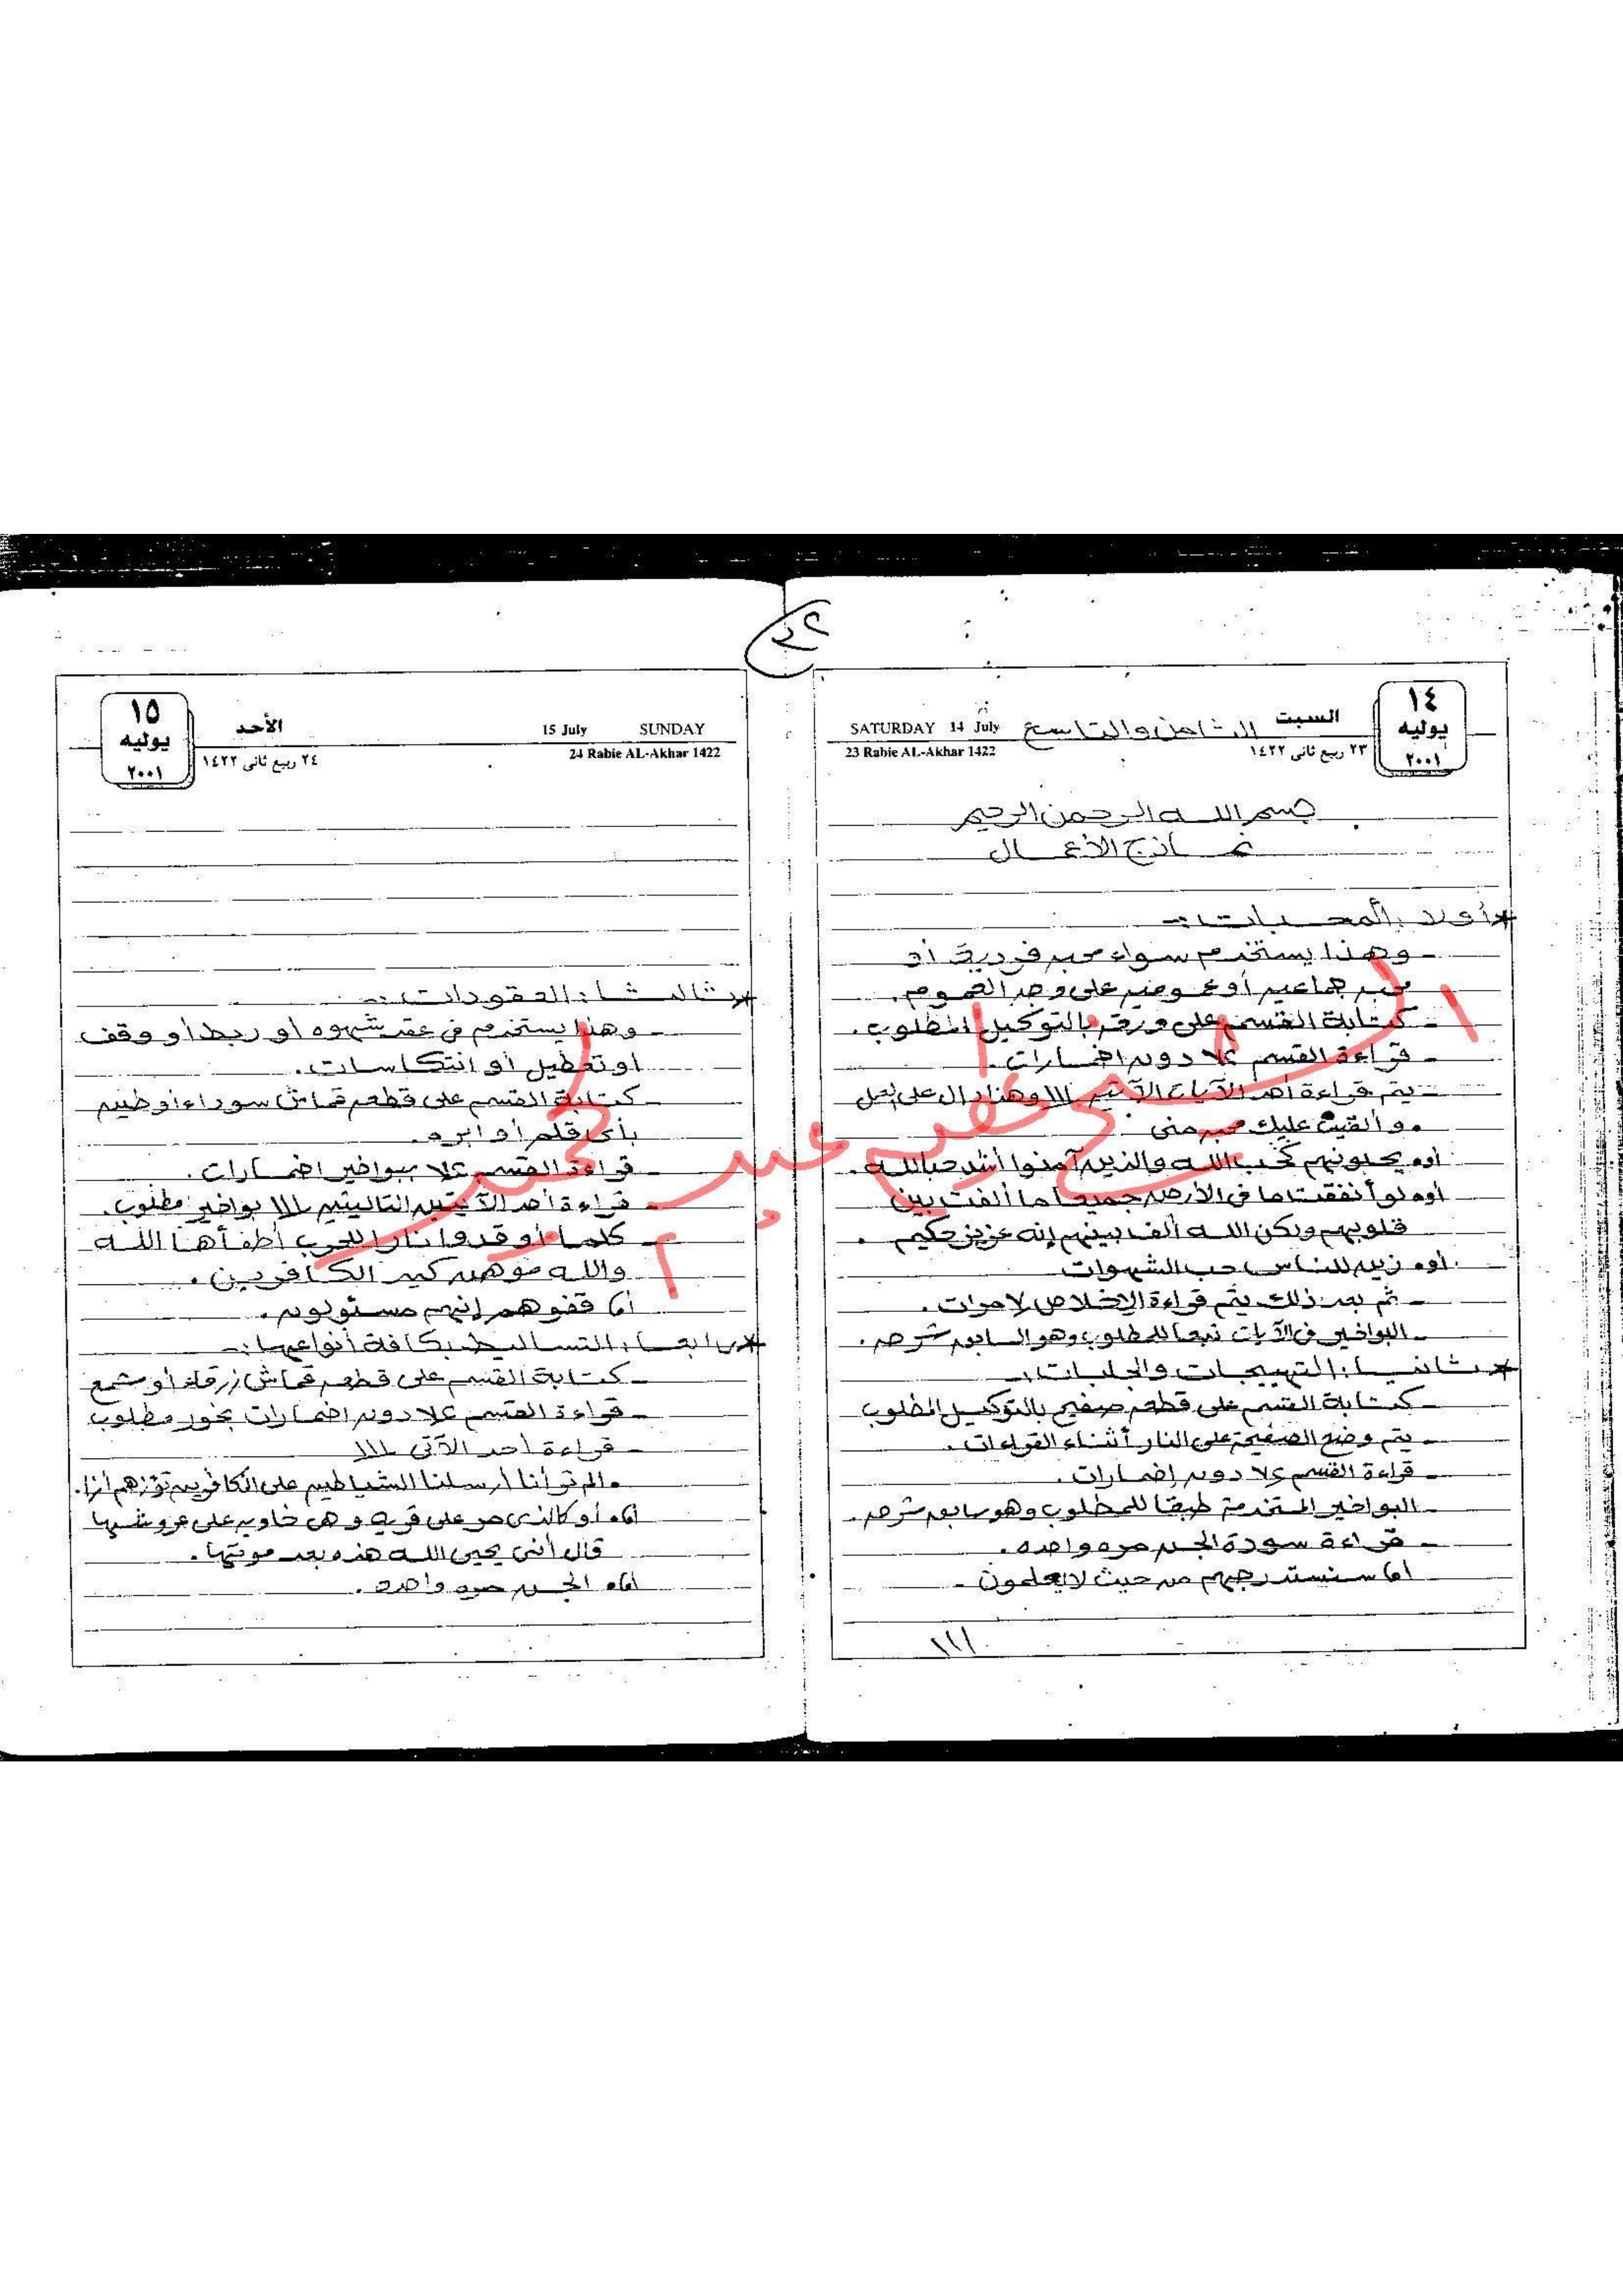 ٢٢
١٤
يوليه
٢٠٠١
السبت
الثامن والتاسع
SATURDAY 14 July
٢٣ ربيع ثانى ١٤٢٢
23 Rabie AL-Akhar 1422
بسم الله الرحمن الرحيم
نماذج الأعمال
* أولا: المحبات:-
- وهذا يستخدم سواء محبه فرديه أو
محبه جماعيه أو عموميه على وجه العموم.
- كتابة القسم على ورقه بالتوكيل المطلوب.
- قراءة القسم دون اضمارات.
- يتم قراءة أحد الآيات الآتيه ١١١ وهذا دال على العمل
. وألقيت عليك محبه منى
أو. يحبونهم كحب الله والذين آمنوا أشد حبا لله.
أو. لو أنفقت ما فى الأرض جميعا ما ألفت بين
قلوبهم ولكن الله ألف بينهم إنه عزيز حكيم.
أو. زين للناس حب الشهوات
- ثم بعد ذلك يتم قراءة الإخلاص مرات.
- البواخير فى الآيات تبعا للمطلوب وهو السابق شرحه.
* ثانيا: التهييجات والجلبات:-
- كتابة القسم على قطعه صفيح بالتوكيل المطلوب
- يتم وضع الصفيحة على النار أثناء القراءات.
- قراءة القسم دون إضمارات.
- البواخير المستخدمة طبقا للمطلوب وهو سابق شرحه.
- قراءة سورة الجن مره واحده.
أما سنستدرجهم من حيث لا يعلمون -
١١١
١٥
يوليه
٢٠٠١
الأحد
15 July SUNDAY
٢٤ ربيع ثانى ١٤٢٢
24 Rabie AL-Akhar 1422
* ثالثا: العقودات:-
- وهذا يستخدم فى عقد شهوه أو ربط أو وقف
أو تعطيل أو انتكاسات.
- كتابة القسم على قطعه قماش سوداء أو طيبه
بأى قلم أو ابره.
- قراءة القسم ببواخير اضمارات.
- قراءة أحد الآيتين التاليتين ١١١ بواخير مطلوب.
- كلما أوقدوا نارا للحرب أطفأها الله
والله موهن كيد الكافرين.
أما قفوهم إنهم مسئولون.
* رابعا: التساليط بكافة أنواعها:-
- كتابة القسم على قطعه قماش زرقاء أو شمع
- قراءة القسم دون اضمارات بخور مطلوب
- قراءة أحد الآتى ١١١
. الم تر أنا أرسلنا الشياطين على الكافرين تؤزهم أزا.
أما. أو كالذى مر على قريه وهى خاويه على عروشها
قال أنى يحيى الله هذه بعد موتها.
أما. الجن مره واحده.
الشيخ
عبد